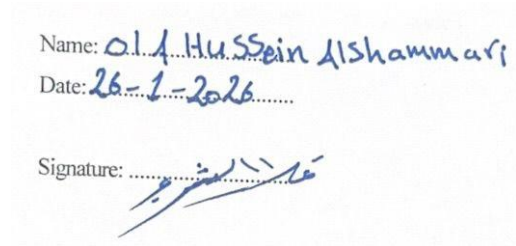 Name: Ola Hussein Alshammari
Date: 26-1-2026
Signature: